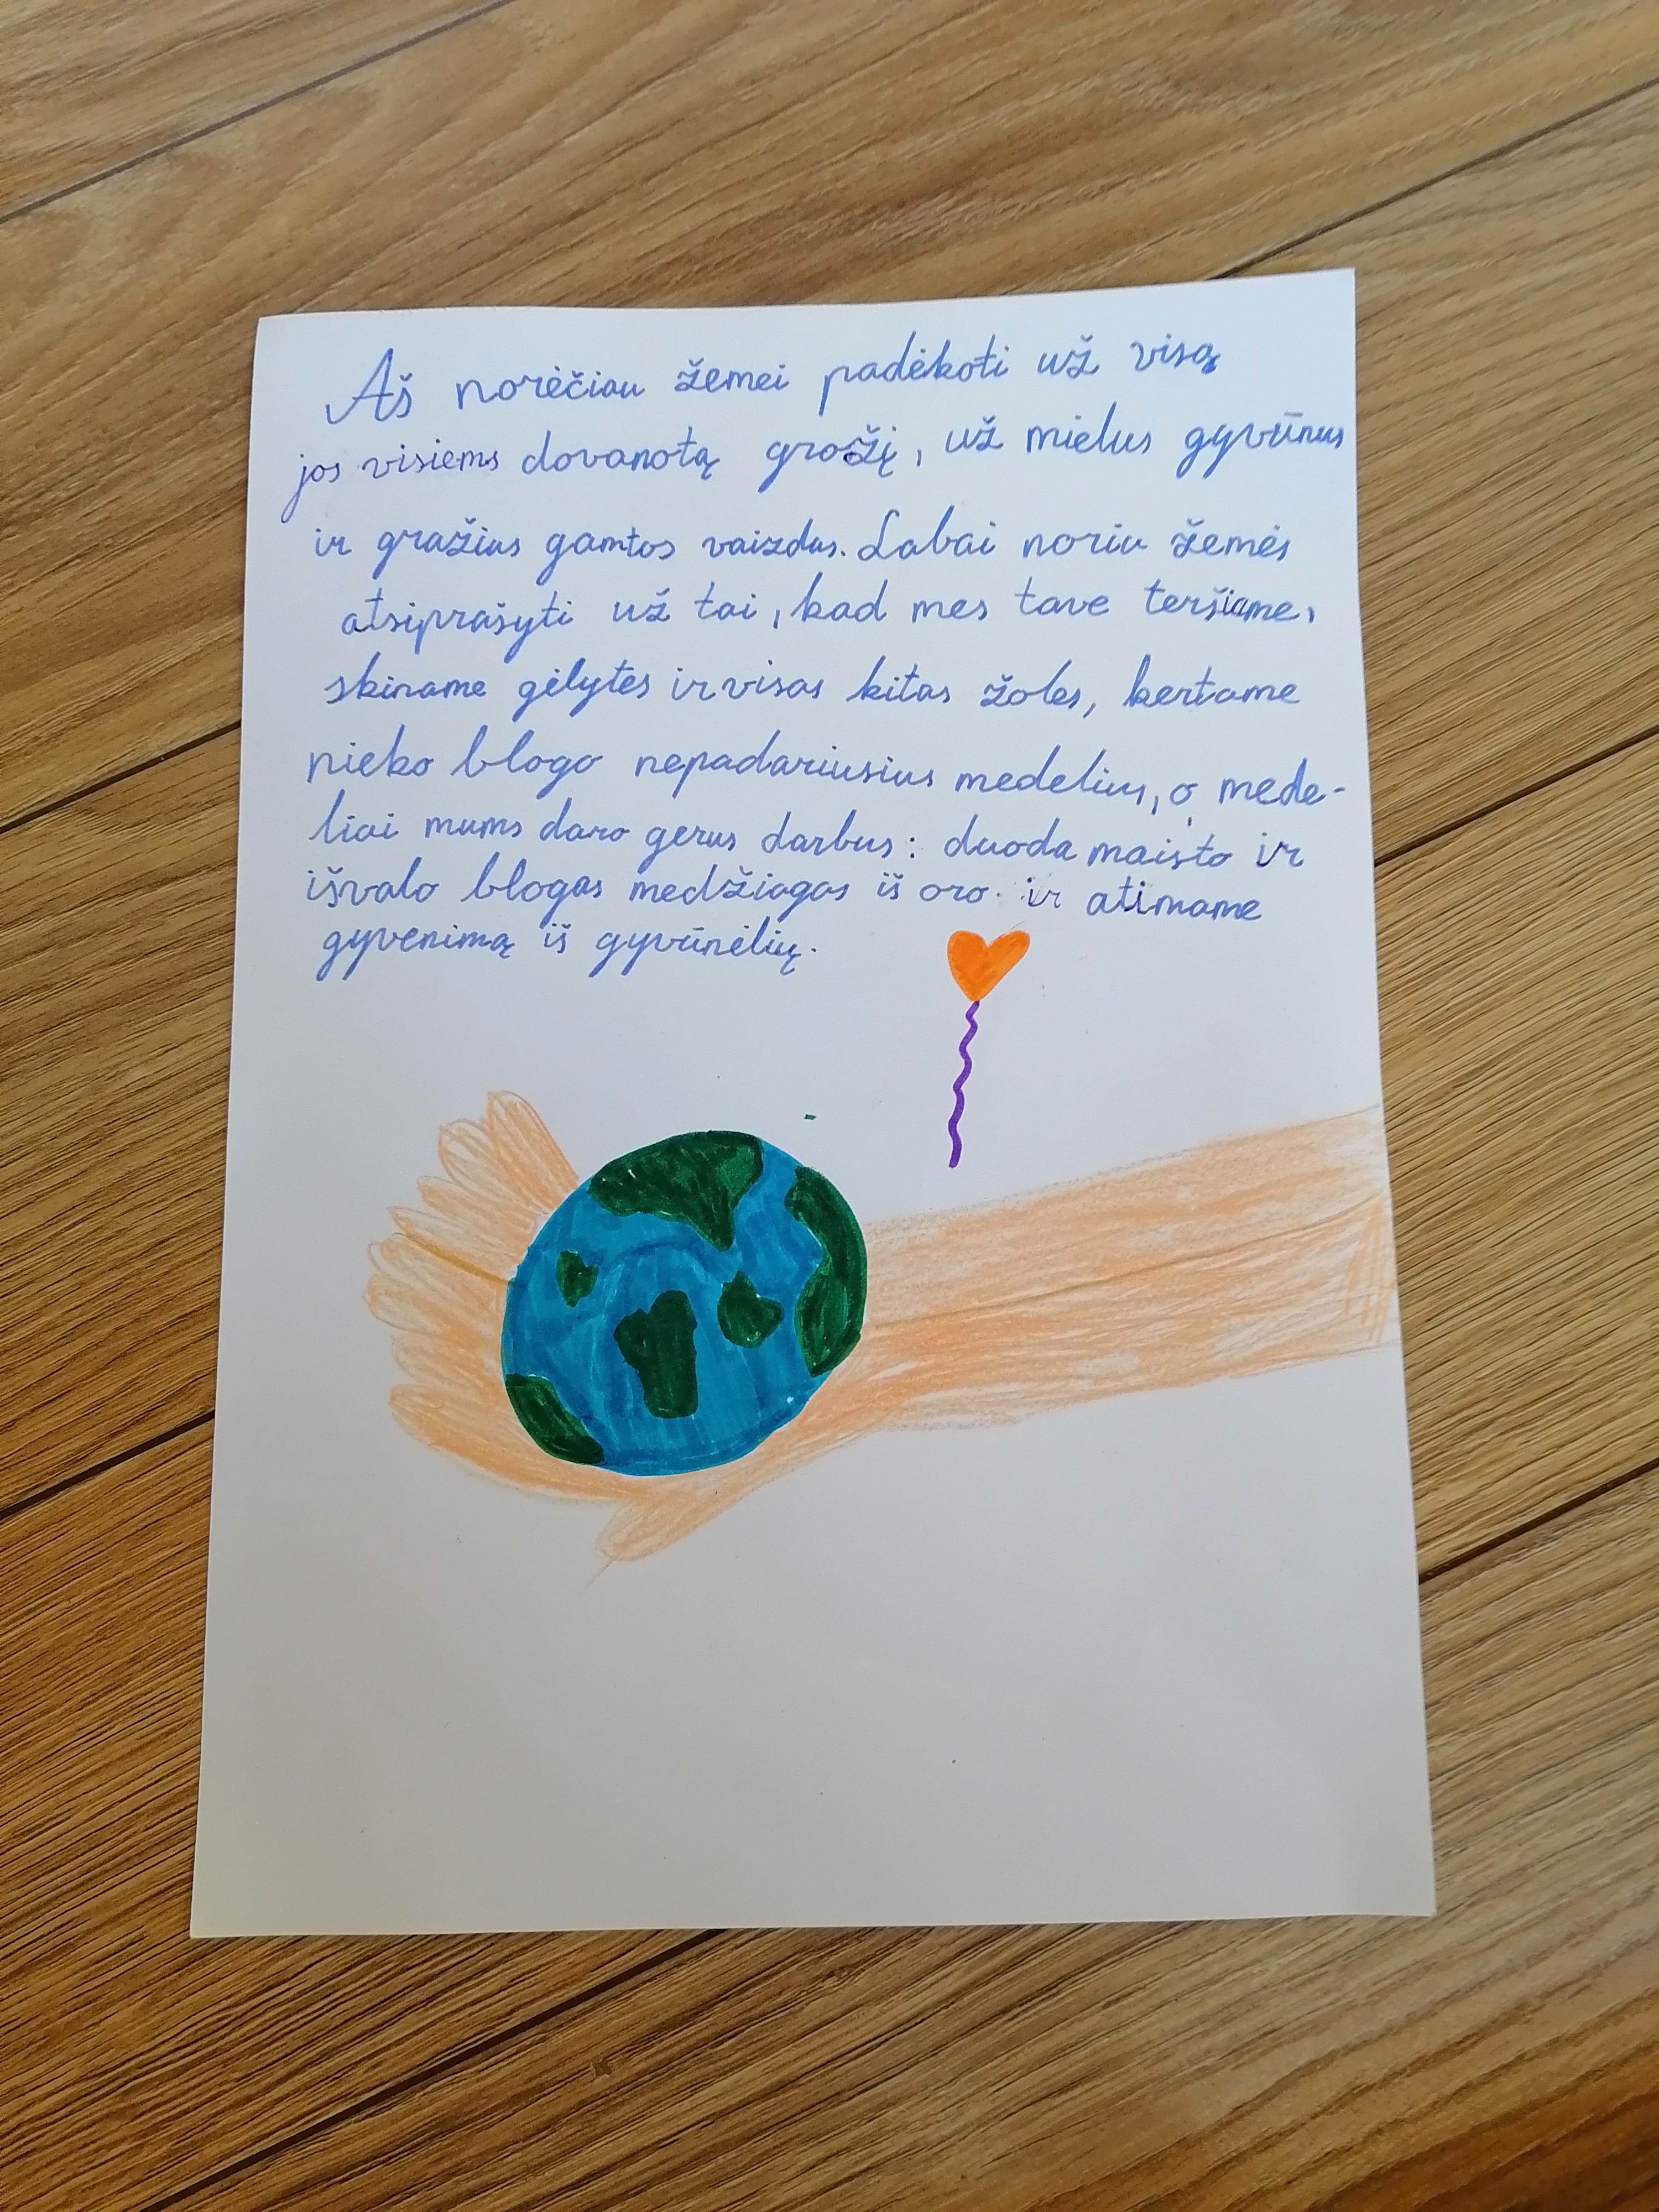 Aš norėčiau žemei padėkoti už visą
jos visiems dovanotą grožį, už mielus gyvūnus
ir gražius gamtos vaizdus. Labai noriu žemės
atsiprašyti už tai, kad mes tave teršiame,
skiname gėlytes ir visas kitas žoles, kertame
nieko blogo nepadariusius medelius, o mede-
liai mums daro gerus darbus: duoda maisto ir
išvalo blogas medžiagas iš oro. ir atimame
gyvenimą iš gyvūnėlių.